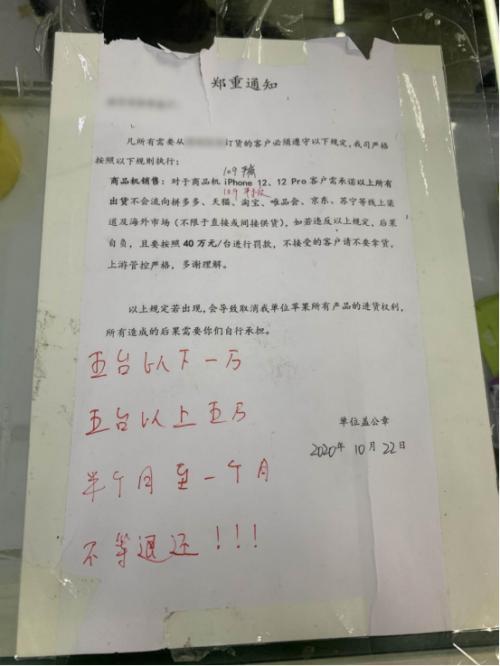 郑重通知
凡所有需要从订货的客户必须遵守以下规定，我司严格
按照以下规则执行：
商品机销售：对于商品机 iPhone 12、12 Pro 客户需承诺以上所有
出货不会流向拼多多、天猫、淘宝、唯品会、京东、苏宁等线上渠
道及海外市场（不限于直接或间接供货），如若违反以上规定，后果
自负，且要按照 40 万元/台进行罚款，不接受的客户请不要拿货，
上游管控严格，多谢理解。
以上规定若出现，会导致取消我单位苹果所有产品的进货权利，
所有造成的后果需要你们自行承担。
五台以下一万
五台以上五万
单位盖公章
2020年 10月 22日
半个月至一个月
不等退还！！！